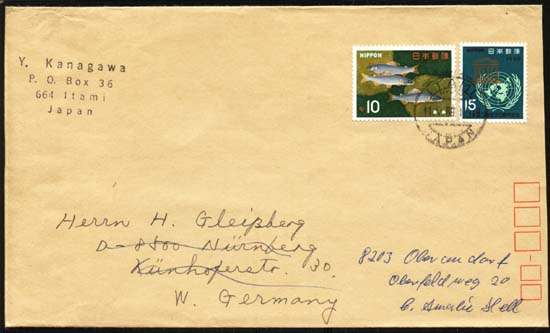 Y. Kanagawa
P. O. Box 36
664 Itami
Japan
NIPPON 日本郵便
10
NIPPON 日本郵便
15
JAPAN
Herrn H. Gleißberg
D-8500 Nürnberg
Künhoferstr. 30
W. Germany
8203 Oberaudorf
Oberfeldweg 20
b. Amalie Hell